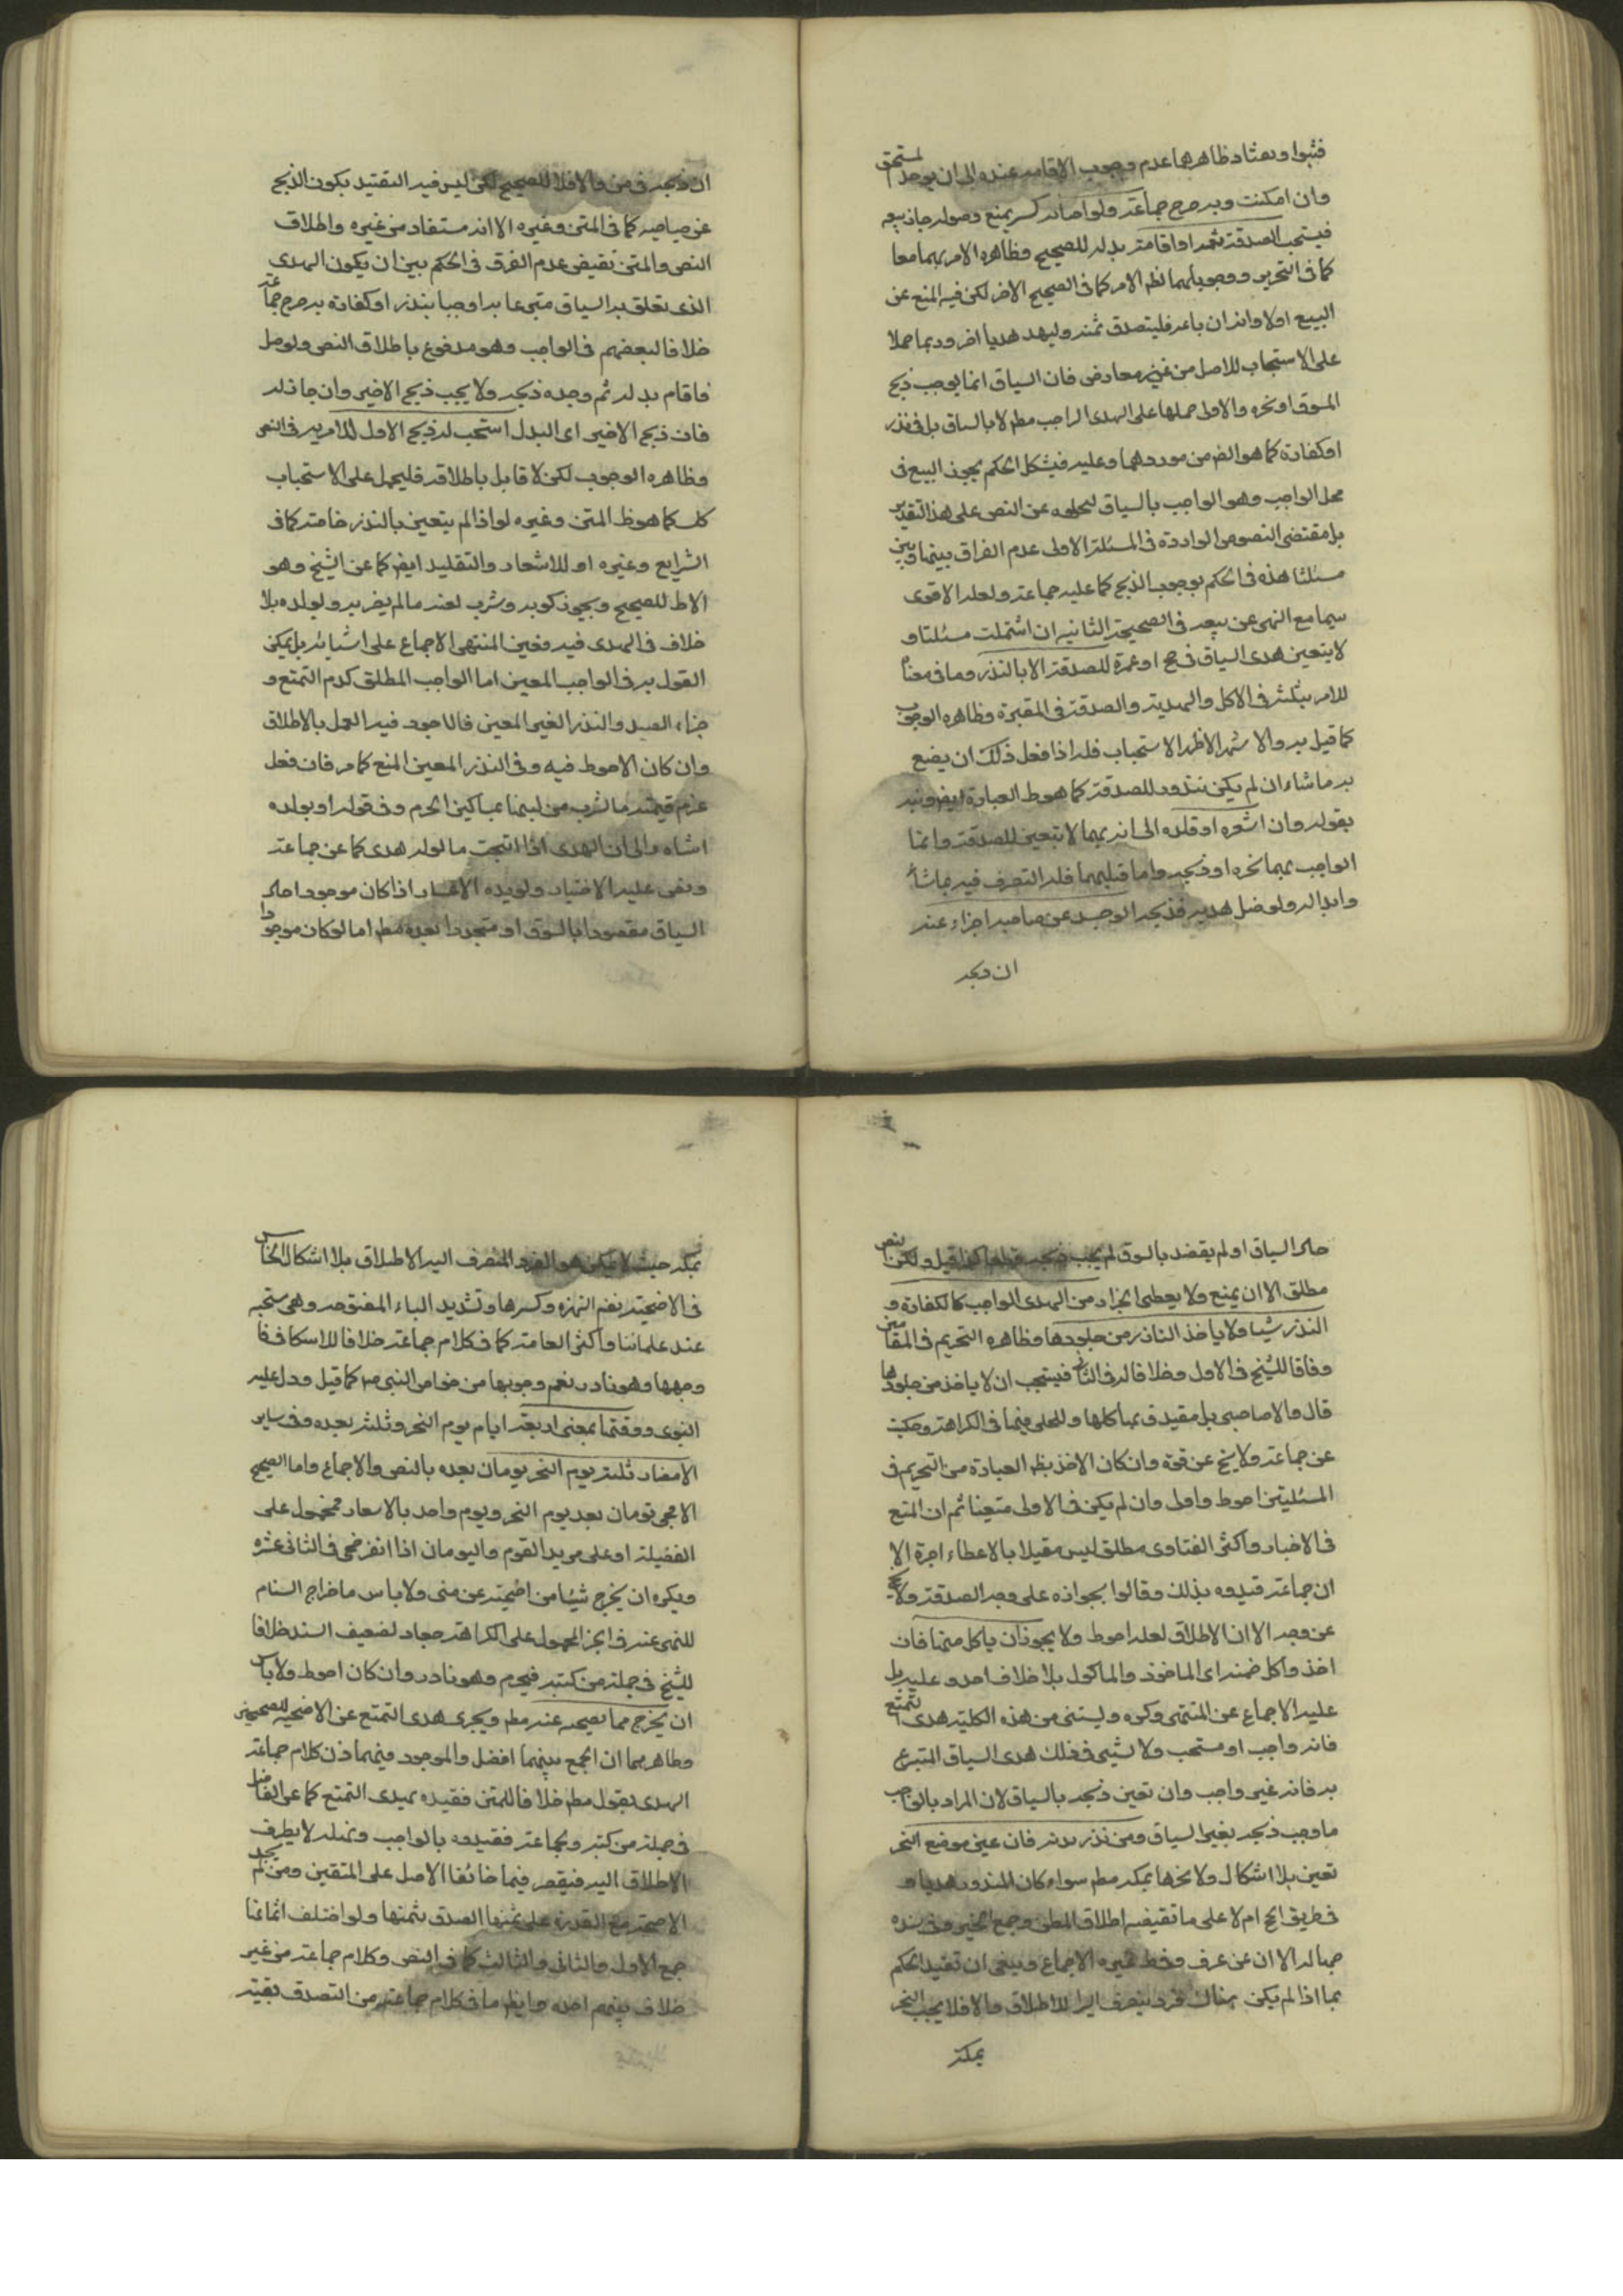 وظاهرها عدم وجوب الاقامة عنده الى ان يوجد المستحق
وان امكنت وبه صرح جماعة ولو اصابه كسر يمنع وصوله جاز بيعه
فيستحب الصدقة بثمنه او اقامة بدله للصحيح وظاهره الامر بهما معا
كما في التحرير ووجوبهما لظ الامر كما في الصحيح الاخر لكن فيه المنع عن
البيع اولا وانه ان باعه فليتصدق بثمنه وليهد هديا اخر وربما حملا
على الاستحباب للاصل من غير معارض فان السياق انما يوجب ذبح
المسوق او نحره والاولى حملها على الهدى الواجب مطم لا بالسياق بل في نذر
او كفارة كما هو الظ من موردهما وعليه فيشكل الحكم بجواز البيع في
محل الواجب وهو الواجب بالسياق لخلوه عن النص على هذا التقدير
بل مقتضى النصوص الواردة في المسئلة الاولى عدم الفرق بينها وبين
مسئلتنا هذه في الحكم بوجوب الذبح كما عليه جماعة ولعله الاقوى
سيما مع النهى عن بيعه في الصحيحة الثانيه ان اشتملت مسئلتنا و
لا يتعين هدى السياق في حج او عمرة للصدقة الا بالنذر وما في معناه
للامر بتثليثه في الاكل والهدية والصدقة في المعتبرة وظاهره الوجوب
كما قيل به والاشهر الاظهر الاستحباب فله اذا فعل ذلك ان يصنع
به ما شاء ان لم يكن منذورا للصدقة كما هو ظ العبارة ايضا
بقوله وان اشعره او قلده الى انه بهما لا يتعين للصدقة وانما
الواجب بهما نحره او ذبحه واما قبلهما فله التصرف فيه بما شاء
وابداله ولو ضل هديه فذبحه الواجد عن صاحبه اجزاء عنه
ان ذبحه
ان ذبحه في منى والا فلا للصحيح لكن ليس فيه التقييد بكون الذبح
عن صاحبه كما في المتن وغيره الا انه مستفاد من غيره واطلاق
النص والمتن تقيضى عدم الفرق في الحكم بين ان يكون الهدى
الذى تعلق به السياق متبرعا به او واجبا بنذر او كفارة به صرح جماعة
خلافا لبعضهم في الواجب وهو مدفوع باطلاق النص ولو ضل
فاقام بدله ثم وجده ذبحه ولا يجب ذبح الاخير وان جاز له
فان ذبح الاخير اى البدل استحب له ذبح الاول للامر به في النص
وظاهره الوجوب لكن لا قايل باطلاقه فليحمل على الاستحباب
كل كما هو ظ المتن وغيره لو اذا لم يتعين بالنذر خاصة كما في
الشرايع وغيره او للاشعار والتقليد ايض كما عن الشيخ وهو
الاظ للصحيح ويجوز ركوبه وشرب لبنه ما لم يضر به ولولده بلا
خلاف في الهدى فيه وفي المنتهى الاجماع على استثنائه بل يمكن
القول به في الواجب المعين اما الواجب المطلق كدم التمتع و
جزاء الصيد والنذر الغير المعين فالاجود فيه العمل بالاطلاق
وان كان الاحوط فيه وفي النذر المعين المنع كما مر فان فعل
غرم قيمته ما شرب من لبنها لمساكين الحرم وفي قوله او بولده
اشاره الى ان الهدى اذا انتجت ما لولد هدى كما عن جماعة
ونفى عليه الاختيار ويؤيده الاعتبار اذا كان موجودا حال
السياق مقصودا بالسوق او متجددا بعده مطم اما لو كان موجودا
حال السياق او لم يقصد بالسوق لم يجب ذبحه قطعا كذا قيل ولكن النص
مطلق الا ان يمنع ولا يعطى الجزار من الهدى الواجب كالكفارة و
النذر شيئا ولا ياخذ الناذر من جلودها وظاهره التحريم في المقامين
وفاقا للشيخ في الاول وخلافا له في الثاني فيستحب ان لا ياخذ من جلودها
قال والاصاحبى بل مقيد في بما كلها وللحلى فيهما في الكراهة وحكيت
عن جماعة ولا يخ عن قوة وان كان الاخذ بظ العبارة من التحريم في
المسئلتين احوط واولى وان لم يكن في الاولى متعينا ثم ان المنع
في الاخبار واكثر الفتاوى مطلق ليس مقيدا بالاعطاء اجرة الا
ان جماعة قيدوه بذلك وقالوا بجوازه على وجه الصدقة ولا يخ
عن وجه الا ان الاطلاق لعله احوط ولا يجوز ان ياكل منها فان
اخذ واكل ضمنه اى الماخوذ والماكول بلا خلاف اجده عليه بل
عليه الاجماع عن المنتهى وكره ويستثنى من هذه الكلية هدى التمتع
فانه واجب او مستحب ولا ينبى في ذلك هدى السياق المتبرع
به فانه غير واجب وان تعين ذبحه بالسياق لان المراد بالواجب
ما وجب ذبحه بغير السياق ومن نذر بدنه فان عين موضع النحر
تعين بلا اشكال ولا نحرها بمكة مطم سواء كان المنذور هديا و
في طريق الحج ام لا على ما تقيضيه اطلاق المطن وجمع الخبر وفي سنده
جهالة الا ان عن عرف وفي ظ غيره الاجماع وينبغى ان تقيد الحكم
بما اذا لم يكن هناك فرد ينصرف اليه الاطلاق والا فلا يجب النحر
بمكة
بمكة حيث لا يكون هو الفرد المنصرف اليه الاطلاق بلا اشكال الخامس
في الاضحية بضم الهمزة وكسرها وتشديد الياء المفتوحة وهى مستحبه
عند علمائنا واكثر العامة كما في كلام جماعة خلافا للاسكافي فا
وجبها وهو نادر نعم وجوبها من خواص النبى ص كما قيل ودل عليه
النبوى ووقتها بمعنى اربعة ايام يوم النحر وثلثه بعده وفي ساير
الامصار ثلثه يوم النحر ويومان بعده بالنص والاجماع واما الصحيح
الاضحى يومان بعد يوم النحر ويوم واحد بالامصار فمحمول على
الفضيلة او على مريد القوم واليومان اذا انفر ضحى في الثانى عشره
ويكره ان يخرج شيئا من اضحيته عن منى ولا باس باخراج السنام
للنهى عنه في الخبر المحمول على الكراهة حجاد لضعيف السند خلافا
للشيخ في جملة من كتبه فيحرم وهو نادر وان كان احوط ولا باس
ان يخرج مما يضحيه عنه مطم ويجزى هدى التمتع عن الاضحيه للصحيحين
وظاهرهما ان الجمع بينهما افضل والموجود فيهما في كلام جماعة
الهدى بقول مطم خلافا للمتن فقيده بهدى التمتع كما عن الفاضل
في جملة من كتبه ولجماعة فقيدوه بالواجب ولعله لا يطرف
الاطلاق اليه فيقتصر فيما خالف الاصل على المتيقن ومن لم يجد
الاضحية مع القدرة على ثمنها تصدق بثمنها ولو اختلف اثمانها
جمع الاول والثانى والثالث كما في النص وكلام جماعة من غير
خلاف بينهم اجده وايظ ما في كلام جماعة من التصدق بقيمة